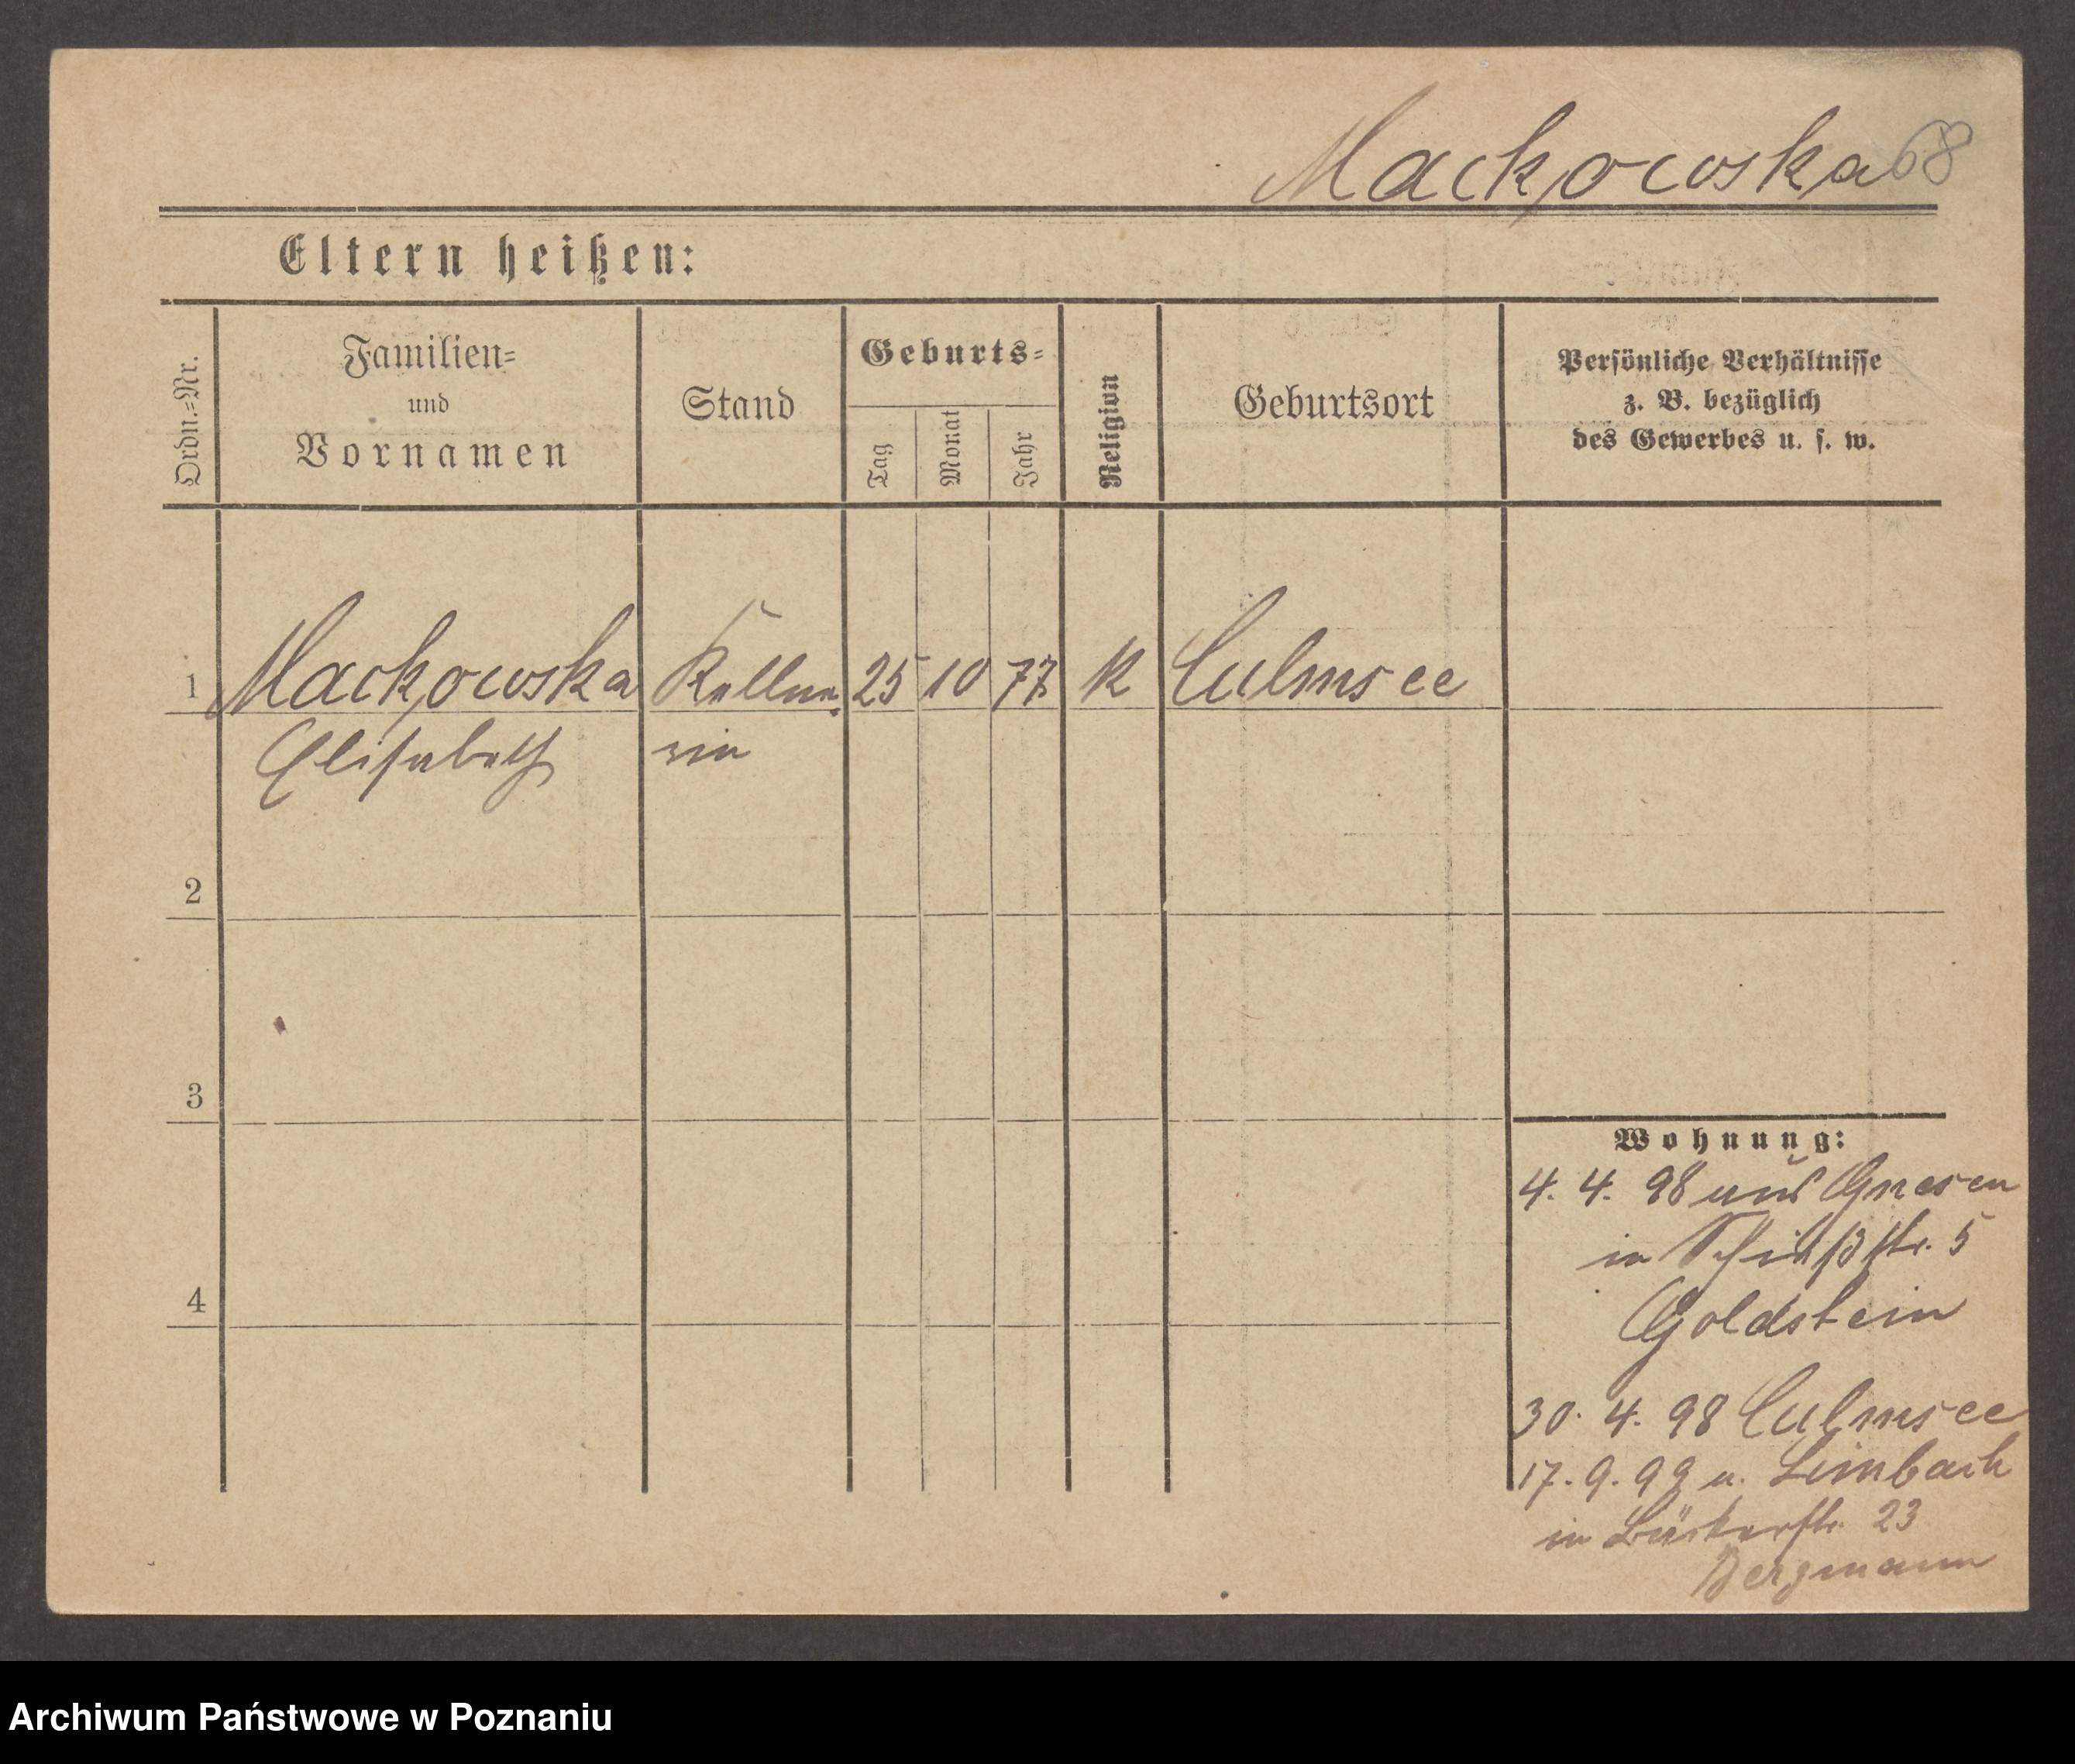 Mackowska 68
Eltern heißen:
Ordn.=Nr.
Familien=
und
Vornamen
Stand
Geburts=
Tag
Monat
Jahr
Religion
Geburtsort
Persönliche Verhältnisse
z. B. bezüglich
des Gewerbes u. s. w.
1 Mackowska Kellne= 25 10 77 K Culmsee
Elisabeth rin
2
3
4
Wohnung:
4. 4. 98 aus Gnesen
in Schießstr. 5
Goldstein
30. 4. 98 Culmsee
17. 9. 99 a. Limbach
in Bäckerstr. 23
Bergmann
Archiwum Państwowe w Poznaniu